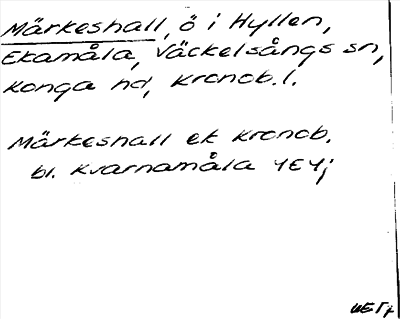 Märkeshall, ö i Hyllen,
Ekamåla, Väckelsångs sn,
Konga hd, Kronob. l.
Märkeshall ek Kronob.
bl. Kvarnamåla 4E4j